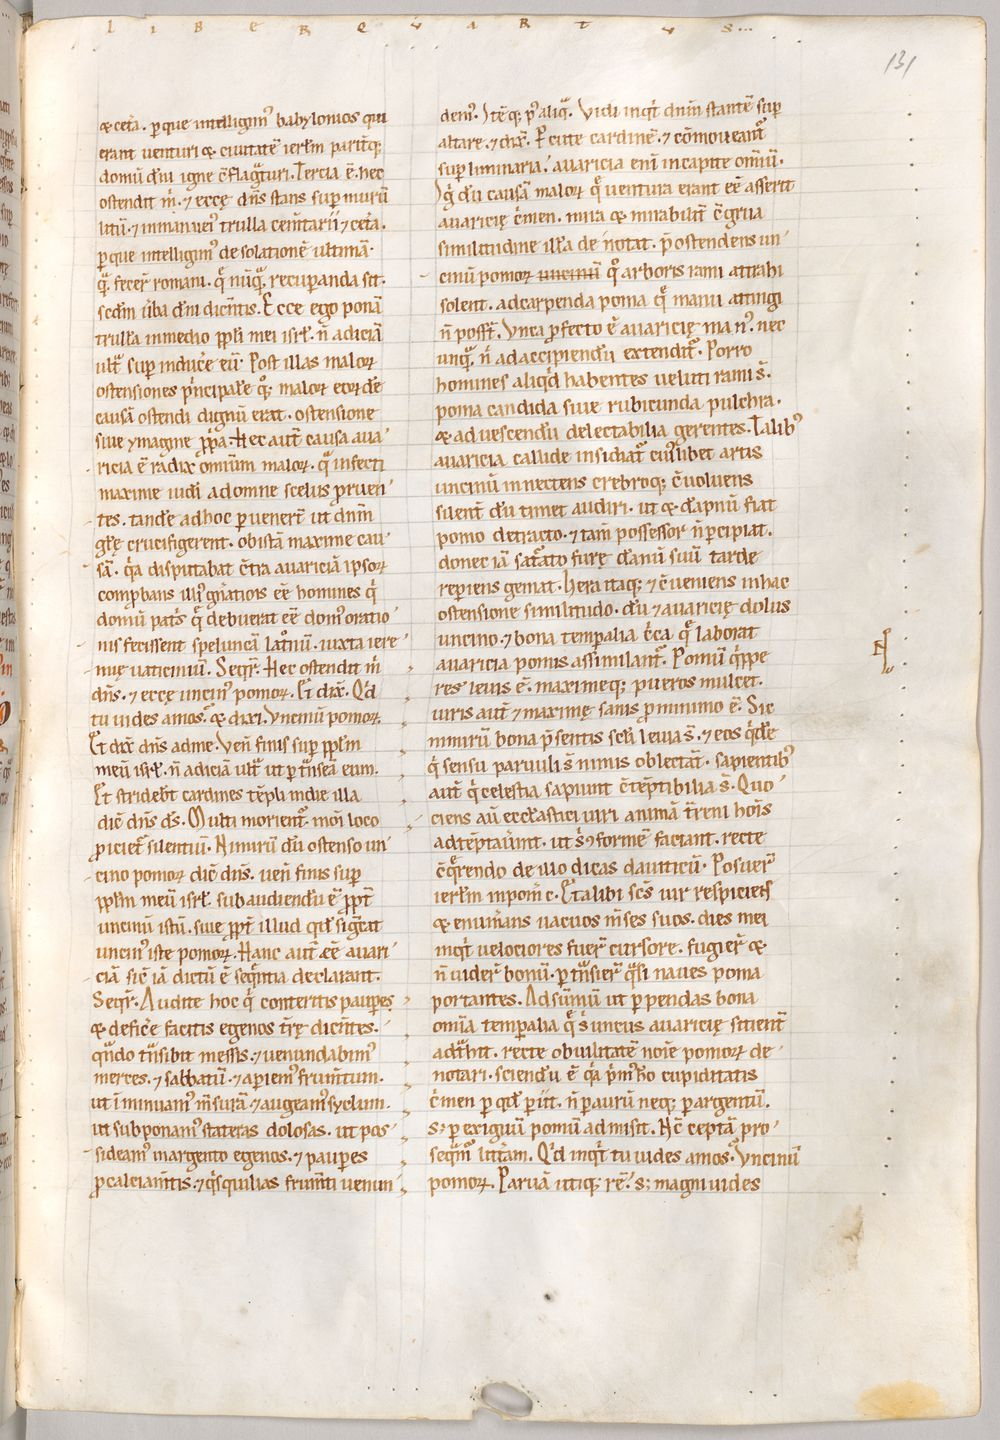 LIBER QVARTVS...
131
& ceta. per que intelligim᷒ babylonios qui
erant uenturi & ciuitatē ierl̄m parit̄q;
domū dn̄i igne c̄flagͣturi. Tercia ē. hec
ostendit m̄. ⁊ eccę dn̄s stans sup̄ murū
litū. ⁊ in manu ei᷒ trulla cem̄tarii ⁊ ceta.
per que intelligim᷒ desolationē ultimā.
qͣ fecer̄ romani. qͣ nūqͣ recup̄anda sit.
scdm̄ uba dn̄i dicn̄tis. Ecce ego ponā
trullā in medio ppli mei isrl̄. n̄ adiciā
ult̄ sup̄inducre eū. Post illas maloꝝ
ostensiones pͥncipalē q; maloꝝ eoꝝdē
causā ostendi dignū erat. ostensione
siue ymagine ppͥa. Hec aut̄ causa aua-
ricia ē radix omnium maloꝝ. qͣ infecti
maxime iudi ad omne scelus pruen-
tes. tandē ad hoc peruenert ut dn̄m
glͦę crucifigerent. ob istā maxime cau-
sā. qͥa disputabat c̄tra auariciā ipsoꝝ
comprobans illi᷒ gn̄ationis ēē homines qͥ
domū patͥs qͣ debuerat ēē dom᷒ oratio-
nis fecissent speluncā latͦnū. iuxta iere-
mię uaticiniū. Seqͥr. Hec ostendit m̄
dn̄s. ⁊ eccę uncin᷒ pomoꝝ. Et dix̄. Qͥd
tu uides amos. & dixi. Vncinū pomoꝝ.
Et dix̄ dn̄s ad me. Ven̄ finis sup̄ pplm̄
meū isrl̄. n̄ adiciā ult̄ ut pertͣnseā eum.
Et stridebt̄ cardines tēpli in die illa
dic̄ dn̄s ds̄. Multi morient̄. in om̄i loco
proiciet̄ silentiū. Nimirū dū ostenso un-
cino pomoꝝ dic̄ dn̄s. uen̄ finis sup̄
pplm̄ meū isrl̄. subaudiendū ē ppt̄
uncinū istū. siue ppt̄ illud qd̄ sigͣcat
uncin᷒ iste pomoꝝ. Hanc aut̄ ēē auari-
ciā sic̄ iā dictū ē seqn̄tia declarant.
Seqͥr. Audite hoc qͥ conteritis paup̄es
& deficͤe facitis egenos tr̄ę dicn̄tes.
qͣndo tͣnsibit messis. ⁊ uenundabim᷒
merces. ⁊ sabbatū. ⁊ apiem᷒ frum̄tum.
ut īminuam᷒ m̄surā. ⁊ augeam᷒ syclum.
ut subponam᷒ stateras dolosas. ut pos-
sideam᷒ in argento egenos. ⁊ paup̄es
pro calciam̄tis. ⁊ qͥsquilias frum̄ti uenun-
dem᷒. Itēq; p᷒ aliqͣ. Vidi inqͥt dn̄m stantē sup̄
altare. ⁊ dix̄. Percute cardinē. ⁊ cōmoueant̄
sup̄liminaria. auaricia eni in capite om̄iū.
Igͥ dū causā maloꝝ qͣ uentura erant ēē asserit
auaricię cͥmen. mira & mirabilit̄ c̄grua
similitudine illā denotat. p̄ostendens un-
cinū pomoꝝ uncinū qͦ arboris rami attrahi
solent. ad carpenda poma qͣ manu attingi
n̄ possn̄t. Vnca profecto ē auaricię man᷒. nec
unqͣ n̄ ad accipiendū extendit̄. Porro
homines aliqͥd habentes ueluti rami s̄.
poma candida siue rubicunda pulchra.
& ad uescendū delectabilia gerentes. Talib᷒
auaricia callide insidiat̄ cui᷒libet artis
uncinū innectens crebroq; c̄uoluens
silent dū timet audiri. ut & dāpnū fiat
pomo detracto. ⁊ tam̄ possessor n̄ percipiat.
donec iā satͣato furę damnū suū tarde
reperiens gemat. Hera itaq; ⁊ c̄ueniens in hac
ostensione similitudo. dū ⁊ auaricię dolus
uncino. ⁊ bona temp̄alia cͥca qͣ laborat
auaricia pomis assimilant̄. Pomū qͥppe
res leuis ē. maximeq; pueros mulcet.
uiris aut̄ ⁊ maximę sanis pro minimo ē. Sic
nimirū bona p̄sentis scl̄i leuia s̄. ⁊ eos qͥdē
qͥ sensu paruuli s̄ nimis oblectāt. sapientib᷒
aut̄ qͥ celestia sapiunt c̄tēptibilia s̄. Quo-
ciens aū ecclastici uiri animā tͤreni hoīs
adtēptaūint. ut s᷒ ꝯformē faciant. recte
c̄qͣrendo de illo dicas dauiticū. Posuer̄
ierl̄m in pom̄ c. Et alibi sc̄s uir respiciens
& enum̄ans uacuos m̄ses suos. dies mei
inqͥt uelociores fuer̄ cursore. fugier̄ &
n̄ uider̄ bonū. pertͣnsier̄ qͣsi naues poma
portantes. Ad summū ut perpendas bona
om̄ia temp̄alia qͣ s᷒ uncus auaricię scient̄
adtͣhit. recte ob uilitatē noīe pomoꝝ de-
notari. sciendū ē qͥa pͥm᷒ hō cupiditatis
cͥmen per qd̄ periit. n̄ per aurū neq; per argentū.
s; per exiguū pomū admisit. Hc̄ ceptā pro-
seqm̄ litt̄am. Qͥd inqͥt tu uides amos. Vncinū
pomoꝝ. Paruā utiq; rē. s; magni uides